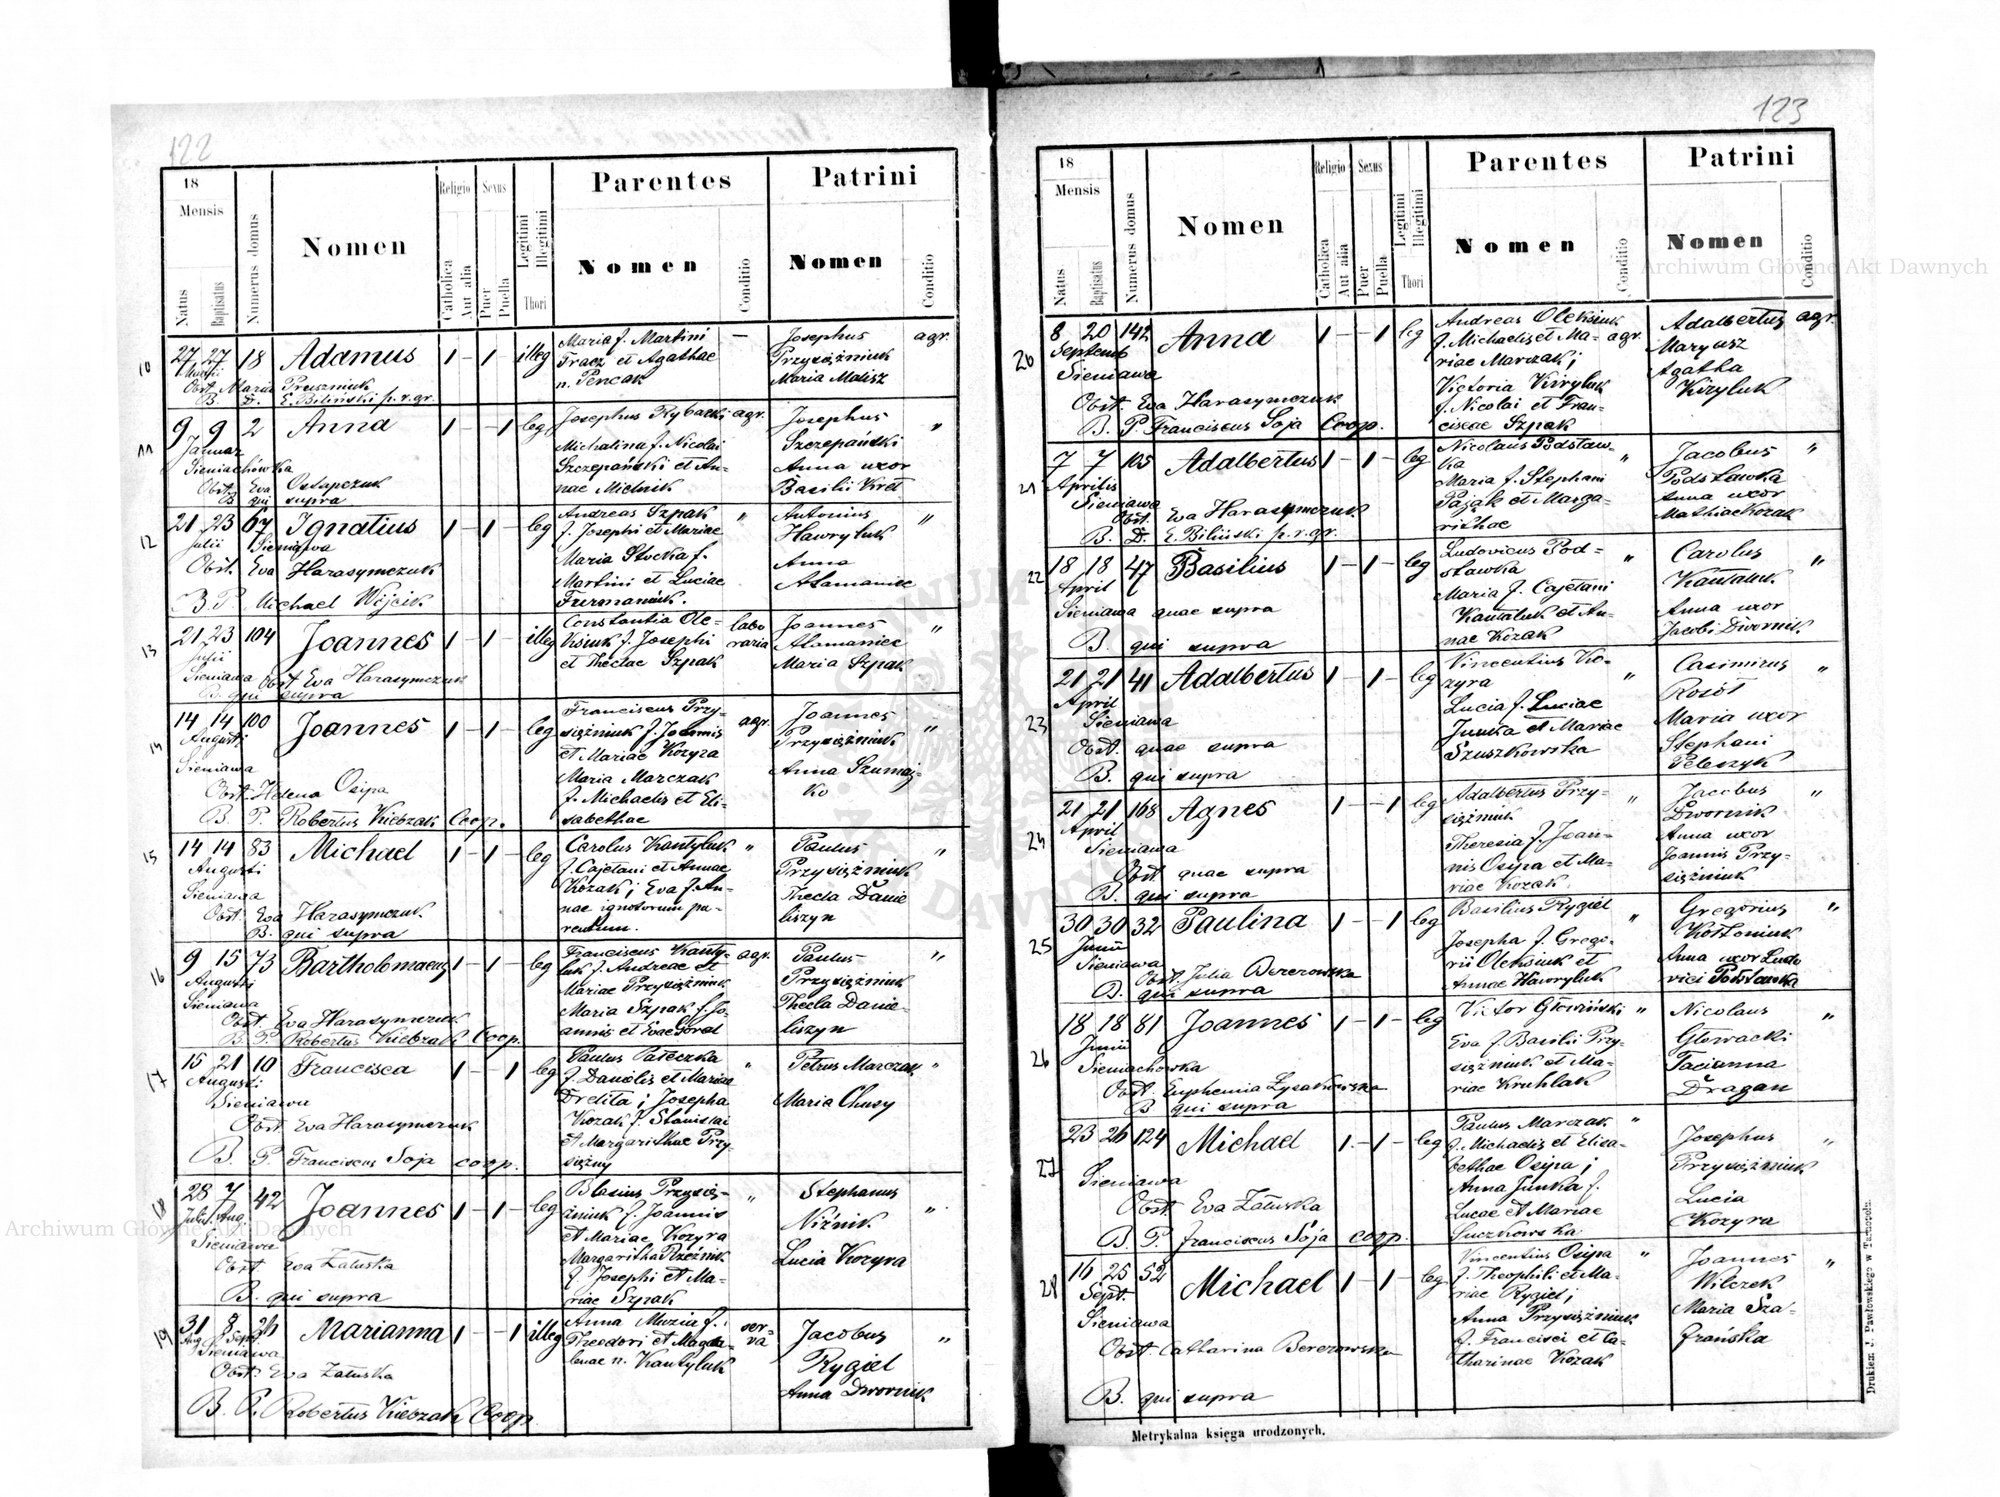 122
18
Mensis
Natus
Baptisatus
Numerus domus
Nomen
Religio
Catholica
Aut alia
Sexus
Puer
Puella
Legitimi
Illegitimi
Thori
Parentes
Nomen
Conditio
Patrini
Nomen
Conditio
10
27 27 18 Adamus 1 – 1 – illeg
Obst. Maria Pruszniuk
B. D. E. Biliński p. r. gr.
Maria f. Martini
Tracz et Agathae
n. Pencak
—
Josephus agr.
Przysiężniuk
Maria Malisz
11
9 9 2 Anna 1 – – 1 leg
Januar
Sieniachówka
Obst. Eva Ostapczuk
B. qui supra
Josephus Rybacki agr.
Michalina f. Nicolai
Szczepański et An-
nae Mielnik
Josephus "
Szczepański
Anna uxor
Basilii Kret
12
21 23 67 Ignatius 1 – 1 – leg
Julii Sieniawa
Obst. Eva Harasymczuk
B. P. Michael Wójcik
Andreas Szpak "
f. Josephi et Mariae
Maria Stocka f.
Martini et Luciae
Furmaniuk.
Antonius "
Hawryluk
Anna
Atamaniec
13
21 23 104 Joannes 1 – 1 – illeg
Julii
Sieniawa Obst Eva Harasymczuk
B. qui supra
Constantia Ole- labo
ksiuk f. Josephi raria
et Theclae Szpak
Joannes "
Atamaniec
Maria Szpak
14
14 14 100 Joannes 1 – 1 – leg
Augusti
Sieniawa
Obst. Helena Osipa
B. P. Robertus Kiebzak Coop.
Franciscus Przy- agr.
siężniuk f. Joannis
et Mariae Kozyra
Maria Marczak
f. Michaelis et Eli-
sabethae
Joannes "
Przysiężniuk
Anna Szumaj-
ko
15
14 14 83 Michael 1 – 1 – leg
Augusti
Sieniawa
Obst. Eva Harasymczuk.
B. qui supra
Carolus Kantyluk "
f. Cajetani et Annae
Kozak; Eva f. An-
nae ignotorum pa-
rentum.
Paulus "
Przysiężniuk
Thecla Danie
liszyn
16
9 15 73 Bartholomaeus 1 – 1 – leg
Augusti
Sieniawa
Obst. Eva Harasymczuk
B. P. Robertus Kiebzak Coop.
Franciscus Kanty- agr.
luk f. Andreae et
Mariae Przysiężniuk
Maria Szpak f. Jo-
annis et Evae
Paulus "
Przysiężniuk
Thecla Danie-
liszyn
17
15 21 10 Francisca 1 – – 1 leg
Augusti
Sieniawa
Obst Eva Harasymczuk
B. P. Franciscus Soja coop.
Paulus Pałeczka "
f. Danielis et Mariae
Dretita; Josepha
Kozak f. Stanislai
et Margarithae Przy-
siężny
Petrus Marczak "
Maria Chusy
18
28 7 42 Joannes 1 – 1 – leg
Julii Aug.
Sieniawa
Obst Eva Załuska
B. qui supra
Blasius Przysięż- "
niuk f. Joannis
et Mariae Kozyra
Margaritha Rzeźnik
f. Josephi et Ma-
riae Szpak
Stephanus
Niźnik "
Lucia Kozyra
19
31 8 26 Marianna 1 – – 1 illeg
Aug Sept.
Sieniawa
Obst. Eva Załuska
B. P. Robertus Kiebzak Coop
Anna Muzia f. ser-
Theodori et Magda- va
lenae n. Kantyluk
Jacobus "
Rygiel
Anna Dwornik
123
18
Mensis
Natus
Baptisatus
Numerus domus
Nomen
Religio
Catholica
Aut alia
Sexus
Puer
Puella
Legitimi
Illegitimi
Thori
Parentes
Nomen
Conditio
Patrini
Nomen
Conditio
20
8 20 142 Anna 1 – – 1 leg
Septemb
Sieniawa
Obst. Eva Harasymczuk
B. P. Franciscus Soja Coop.
Andreas Oleksiuk
f. Michaelis et Ma- agr.
riae Marczak;
Victoria Kiryluk
f. Nicolai et Fran-
ciscae Szpak
Adalbertus agr.
Maryusz
Agatha
Kiryluk
21
7 7 105 Adalbertus 1 – 1 – leg
Aprilis
Sieniawa
Obst. Eva Harasymczuk
B. D. E. Biliński p. r. gr.
Nicolaus Podstaw-
ka "
Maria f. Stephani
Pająk et Marga-
rithae
Jacobus "
Podstawka
Anna uxor
22
18 18 47 Basilius 1 – 1 – leg
April
Sieniawa quae supra
B. qui supra
Ludovicus Pod- "
stawka
Maria f. Cajetani
Kantaluk et An-
nae Kozak
Carolus "
Kantaluk
Anna uxor
Jacobi Dwornik.
23
21 21 41 Adalbertus 1 – 1 – leg
April
Sieniawa
Obst. quae supra
B. qui supra
Vincentius Ko-
zyra "
Lucia f. Luciae
Junka et Mariae
Szuszkowska
Casimirus "
Rosół
Maria uxor
Stephani
Peleszyk
24
21 21 168 Agnes 1 – – 1 leg
April
Sieniawa
Obst quae supra
B. qui supra
Adalbertus Przy- "
siężniuk
Theresia f. Joan-
nis Osipa et Ma-
riae Kozak
Jacobus "
Dwornik
Anna uxor
Joannis Przy-
siężniuk
25
30 30 32 Paulina 1 – – 1 leg
Junii
Sieniawa
Obst. Julia Berezowska
B. qui supra
Basilius Rygiel "
Josepha f. Grego-
rii Oleksiuk et
Annae Hawryluk
Gregorius "
Kołtoniuk
Anna uxor Ludo
vici Podstawka
26
18 18 81 Joannes 1 – 1 – leg
Junii
Sieniachówka
Obst. Euphemia Łysakowska
B qui supra
Victor Głowiński "
Eva f. Basilii Przy-
siężniuk et Ma-
riae Kruhlak
Nicolaus "
Głowacki
Tacianna
Dragan
27
23 26 124 Michael 1 – 1 – leg
Sieniawa
Obst. Eva Załuska
B. P. Franciscus Soja coop.
Paulus Marczak "
f. Michaelis et Elisa-
bethae Osipa;
Anna Junka f.
Lucae et Mariae
Suczkowska
Josephus "
Przysiężniuk
Lucia
Kozyra
28
16 25 52 Michael 1 – 1 – leg
Sept.
Sieniawa
Obst. Catharina Berezowska
B. qui supra
Vincentius Osipa "
f. Theophili et Ma-
riae Rygiel;
Anna Przysiężniuk
f. Francisci et Ca-
tharinae Kozak
Joannes "
Wilczek
Maria Sza-
frańska
Metrykalna księga urodzonych.
Drukiem J. Pawłowskiego w Tarnopolu.
Archiwum Główne Akt Dawnych
Archiwum Główne Akt Dawnych